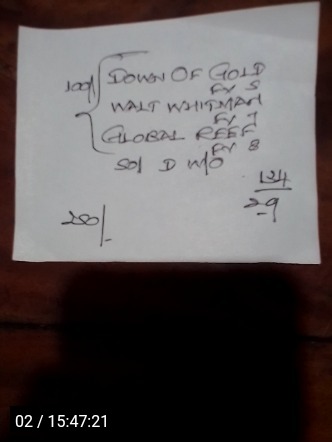 100/ DOWN OF GOLD
FV 5
WALT WHITMAN
FV 7
GLOBAL REEF
FV 8
50/ D W/O
124
29
250/-
02 / 15:47:21